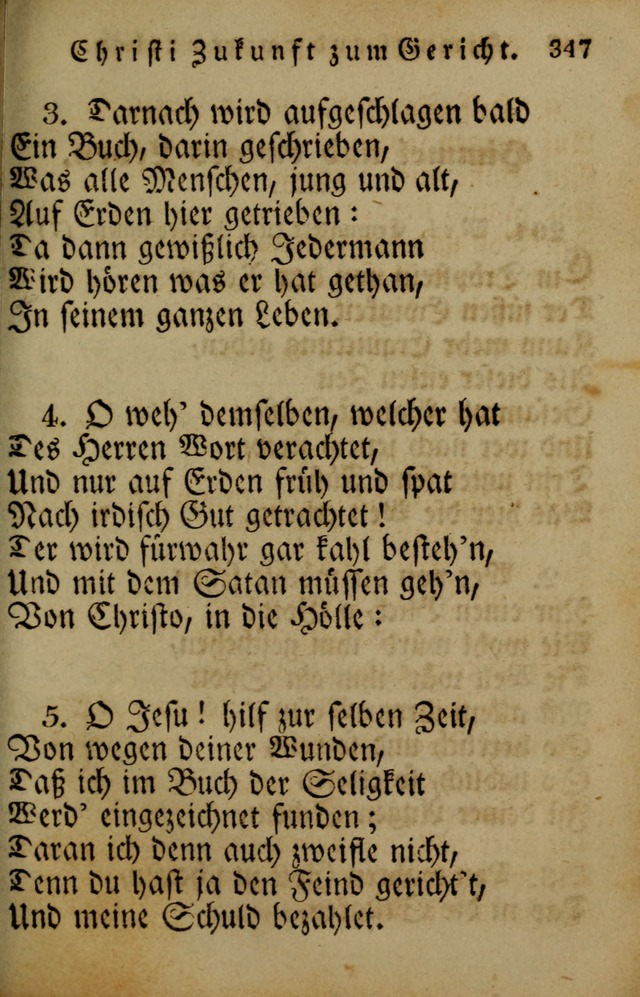 Christi Zukunft zum Gericht. 347
3. Darnach wird aufgeschlagen bald
Ein Buch, darin geschrieben,
Was alle Menschen, jung und alt,
Auf Erden hier getrieben:
Da dann gewißlich Jedermann
Wird hören was er hat gethan,
In seinem ganzen Leben.
4. O weh' demselben, welcher hat
Des Herren Wort verachtet,
Und nur auf Erden früh und spat
Nach irdisch Gut getrachtet!
Der wird fürwahr gar kahl besteh'n,
Und mit dem Satan müssen geh'n,
Von Christo, in die Hölle:
5. O Jesu! hilf zur selben Zeit,
Von wegen deiner Wunden,
Daß ich im Buch der Seligkeit
Werd' eingezeichnet funden;
Daran ich denn auch zweifle nicht,
Denn du hast ja den Feind gericht't,
Und meine Schuld bezahlet.